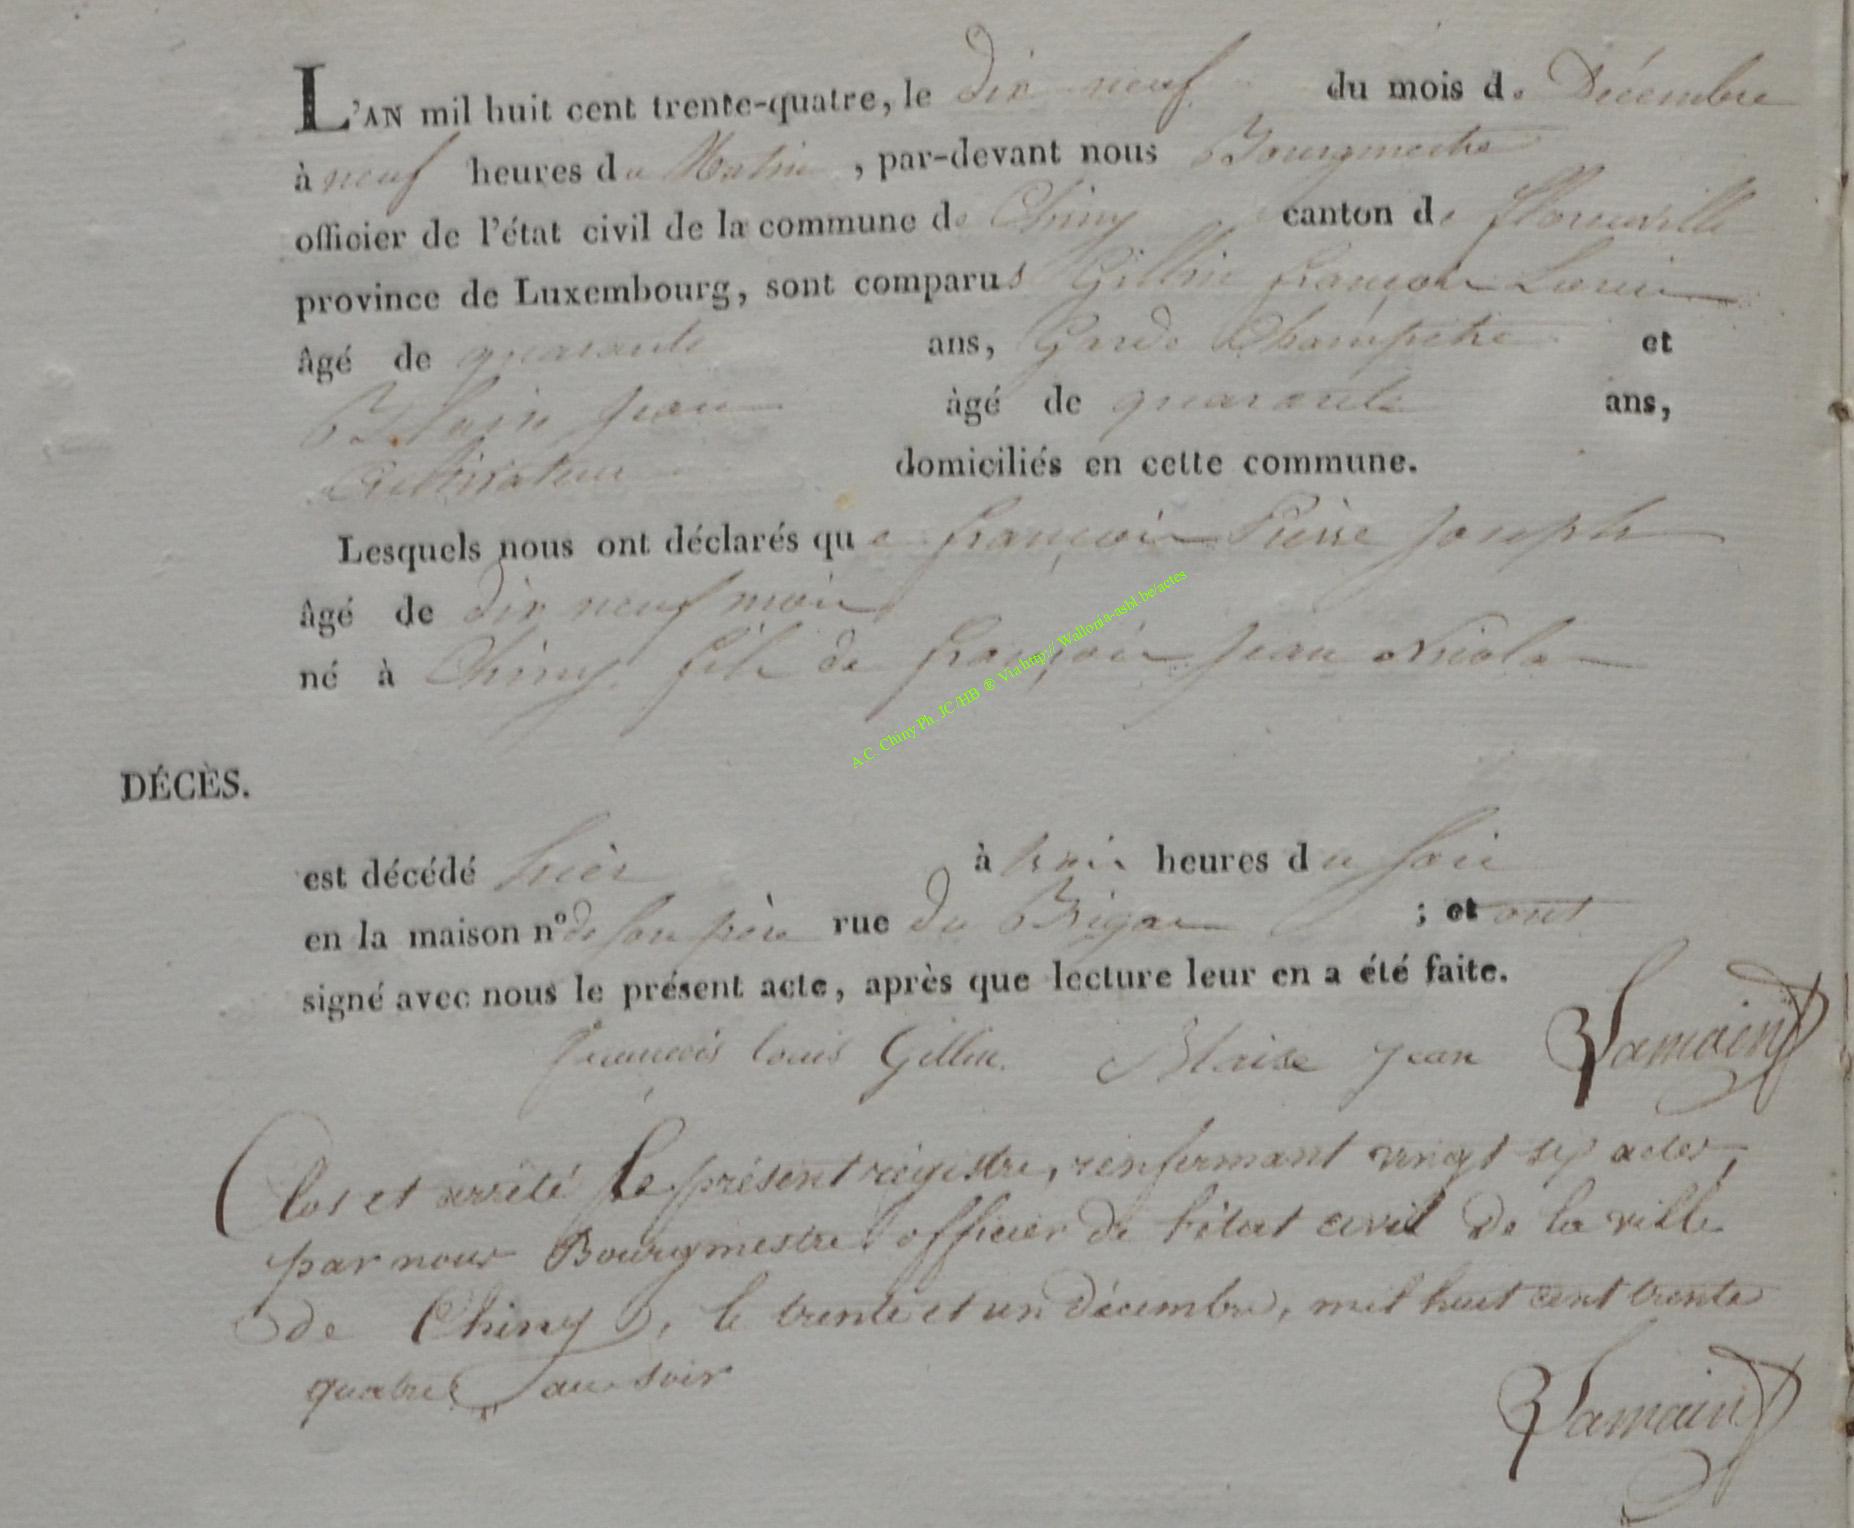 L'AN mil huit cent trente-quatre, le dix neuf du mois de Décembre
à neuf heures du Matin, par-devant nous Bourgmestre
officier de l'état civil de la commune de Chiny canton de florenville
province de Luxembourg, sont comparus Gillin françois Louis
âgé de quarante ans, Garde Champetre et
Blaise Jean âgé de quarante ans,
Cultivateur domiciliés en cette commune.
Lesquels nous ont déclarés que françois Pierre Joseph
âgé de dix neuf mois
né à Chiny fils de françois Jean Nicolas
A.C. Chiny Ph. JC/HB ® Via http:// Wallonia-asbl be/actes
DÉCÈS.
est décédé hier à trois heures du soir
en la maison nº de son père rue du ; et ont
signé avec nous le présent acte, après que lecture leur en a été faite.
francois louis Gillin. Blaise jean Lamain
Clos et arrêté le présent régistre, renfermant vingt sep actes,
par nous Bourgmestre officier de l'état civil de la ville
de Chiny, le trente et un décembre, mil huit cent trente
quatre au soir
Lamain